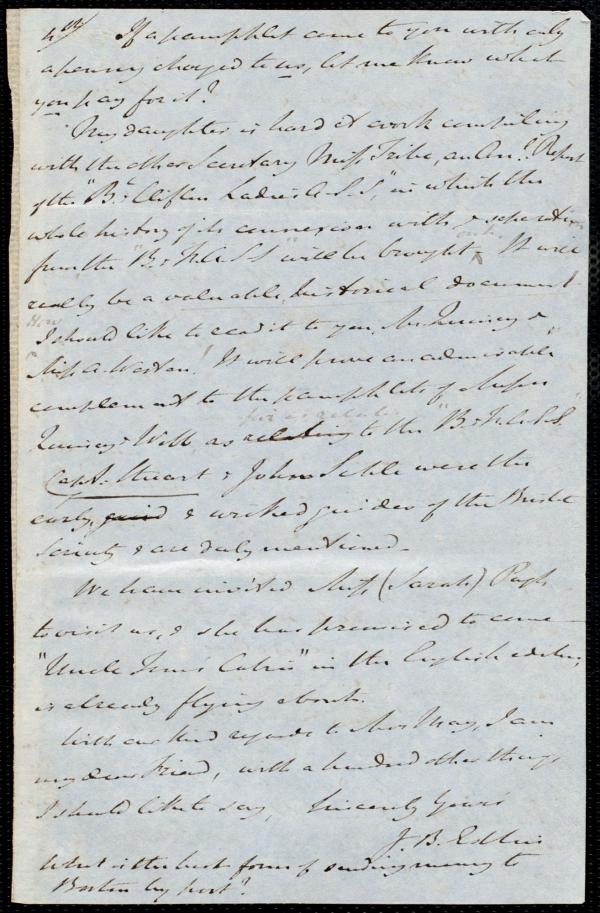 4th If a pamphlet come to you with only
a penny charged to us, let me know what
you pay for it?
My daughter is hard at work compiling
with the other Secretary Miss Tribe, an Anl. "Report
of the "B. & Clifton Ladies A. S. S", in which the
whole history of its connexion with & separation
from the "B. & F. A. S. S" will be brought. It will
really be a valuable, historical document.
How I should like to read it to you, Mr. Quincy &
"Miss A. Weston"! It will prove an admirable
complement to the pamphlets of Messrs
Quincy & Webb, as far as relates to the "B. & F. A. S. S."
Capt. Stuart & John Scble were the
early, & wicked guides of the Bristol
Society & are duly mentioned.
We have invited Miss (Sarah) Pugh
to visit us, & she has promised to come -
"Uncle Toms Cabin" in the English edition,
is already flying about.
With our kind regards to Mrs May, I am
my dear Friend, with a hundred other things
I should like to say, Sincerely Yours
J. B. Estlin
What is the best form of sending money to
Boston by post?